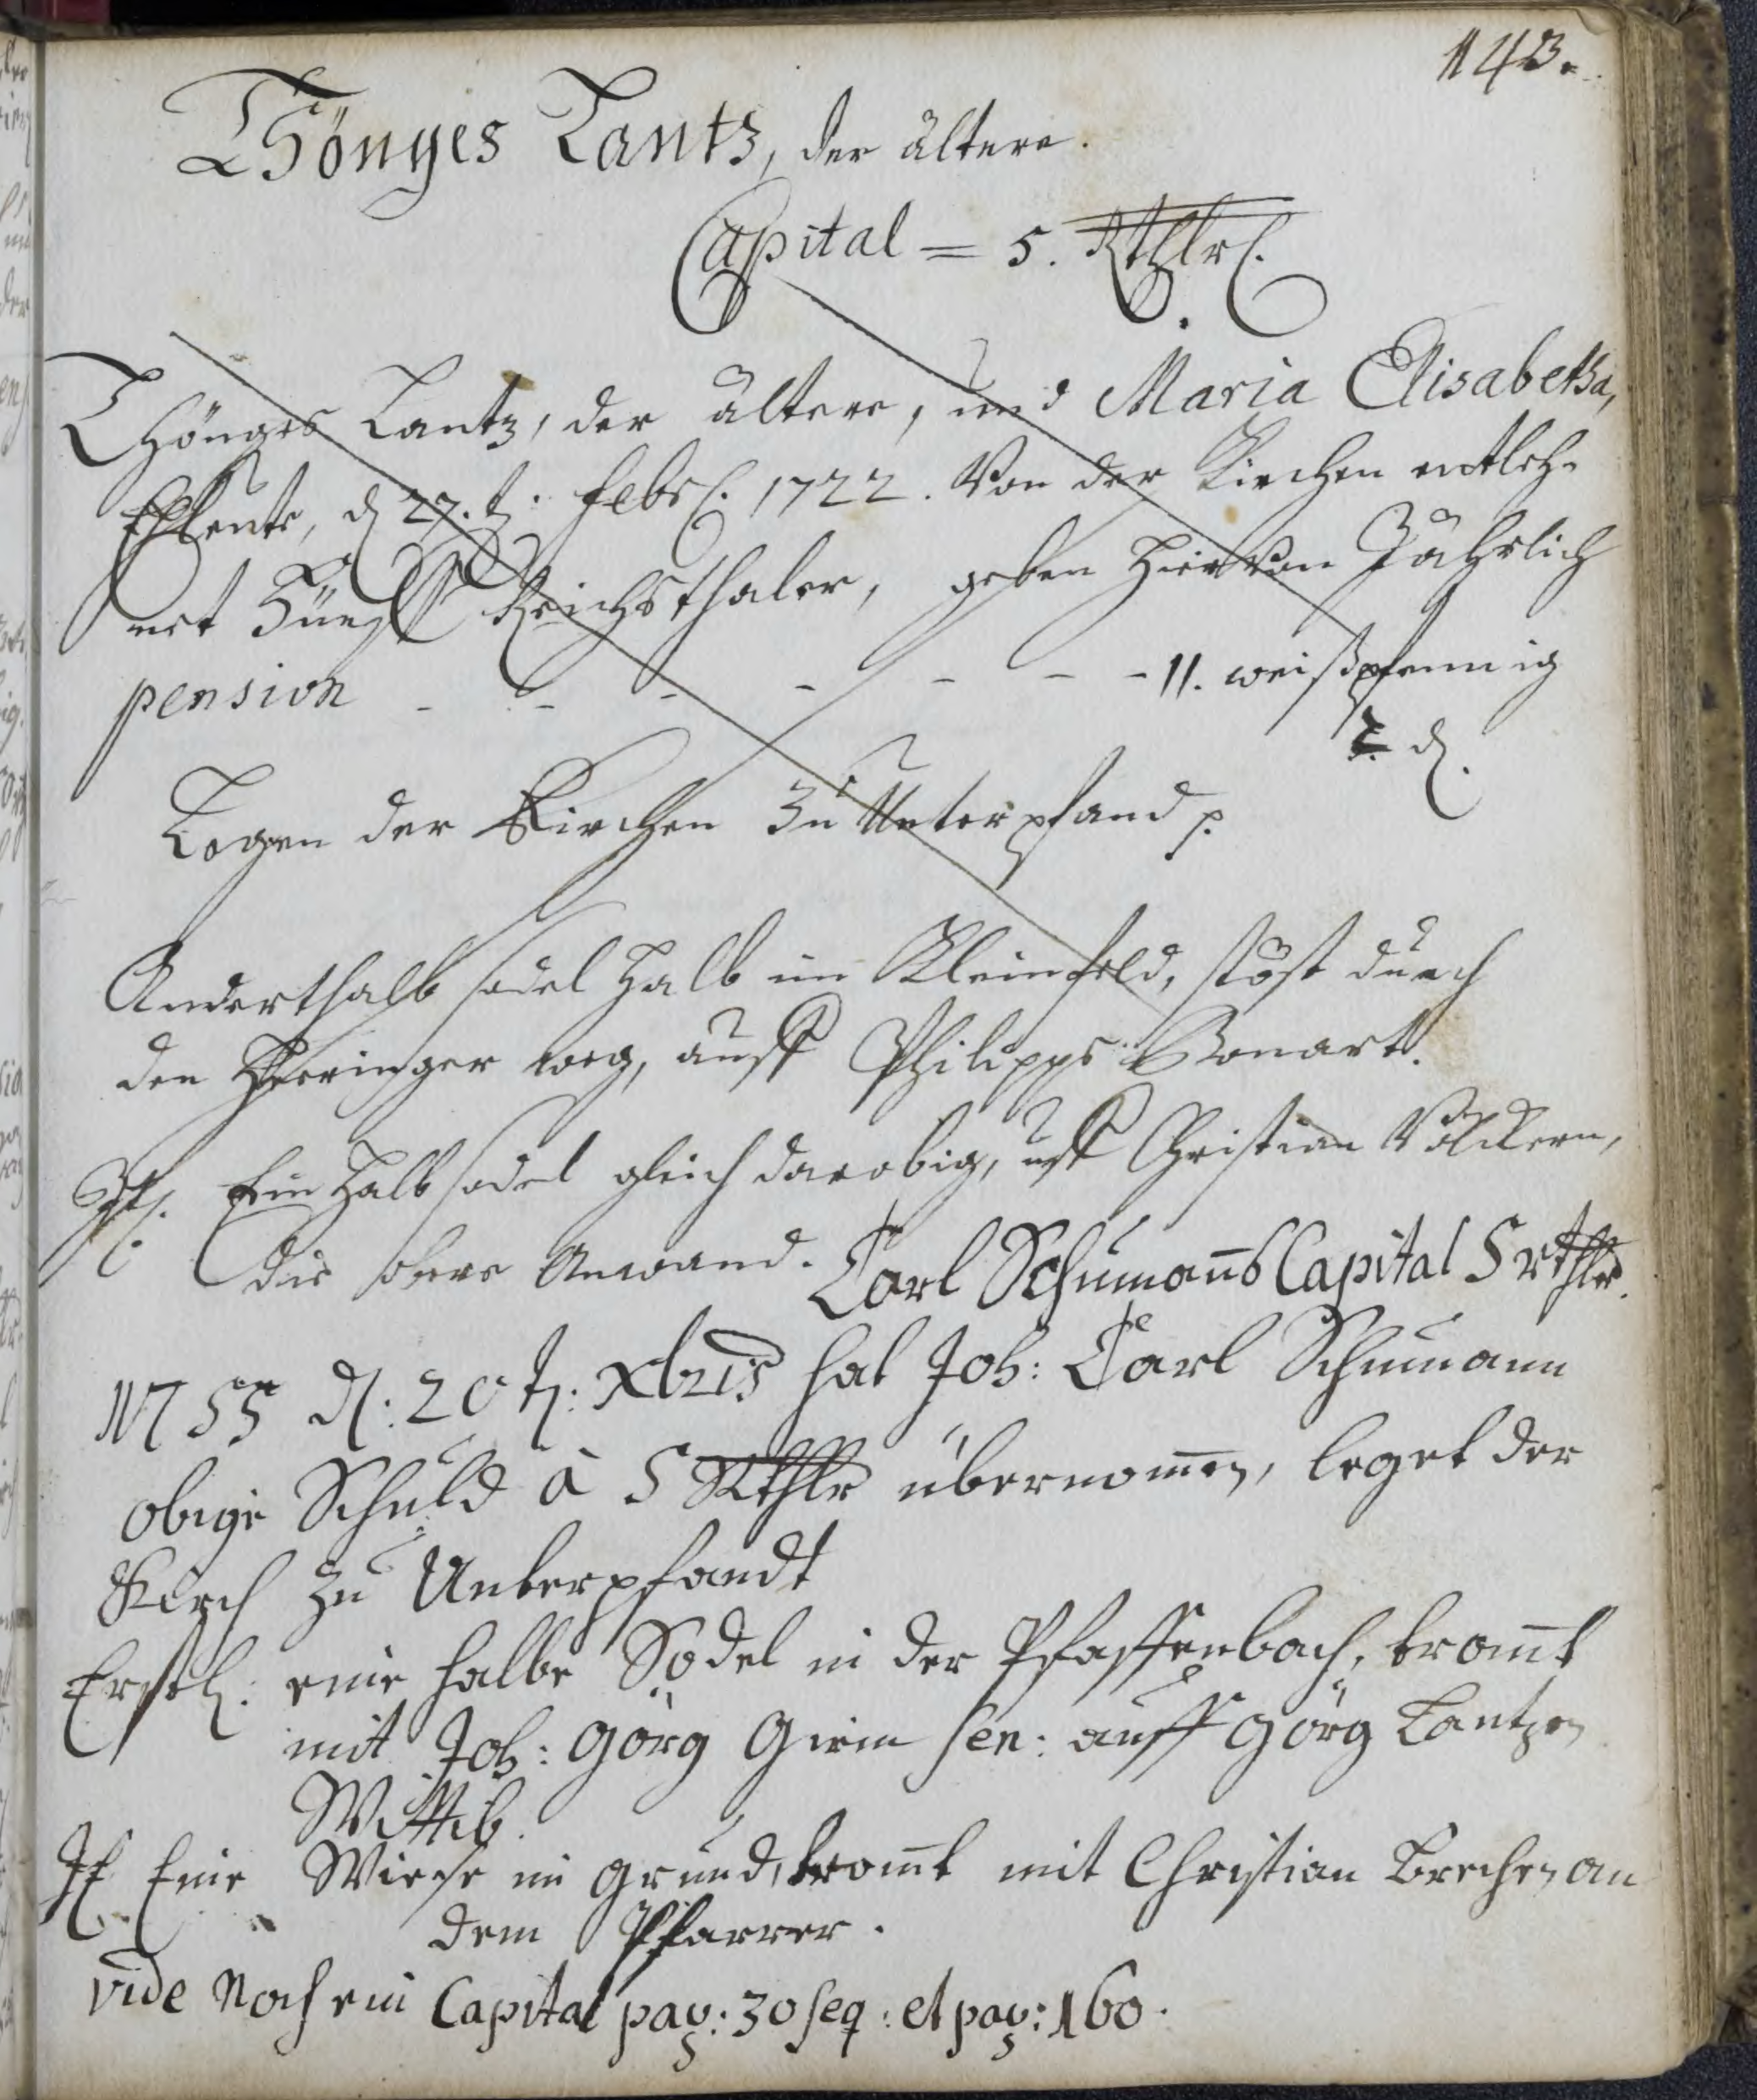 143.
Thönges Lantz, der ältere.
Capital = 5. Rthlr.
Thönges Lantz, der ältere, und Maria Elisabetha,
Ehleute, d 27.t. Febr. 1722. Von der Kirchen entleh-
net Fünff Reichsthaler, geben hiervon Jährlich
pension - - - - - - - 11. weißpfennig
2 d.
Legen der Kirchen zu Unterpfand p.
Anderthalb sodel halb im Kleinfeld, stöst durch
den weg, auff Philipps Bonart.
It. Ein halb sodel gleich darobig, uff Christian Völckern,
die obere Anwand. Carl Schumañs Capital 5 rthlr.
1755 d: 20 t: Xbris hat Joh: Carl Schumann
obige Schuld à 5 Rthlr übernom̃en, leget der
Kirch zu Unterpfandt
Erstl: eine halbe Sodel in der Pfaffenbach, kom̃t
mit Joh: Görg Girm sen: auff Görg Lantzen
Wittib.
It Eine Wiese im grund, kom̃t mit Christian Brechen an
dem Pfarrer.
vide Noch ein Capital pag: 30 seq: et pag: 160.